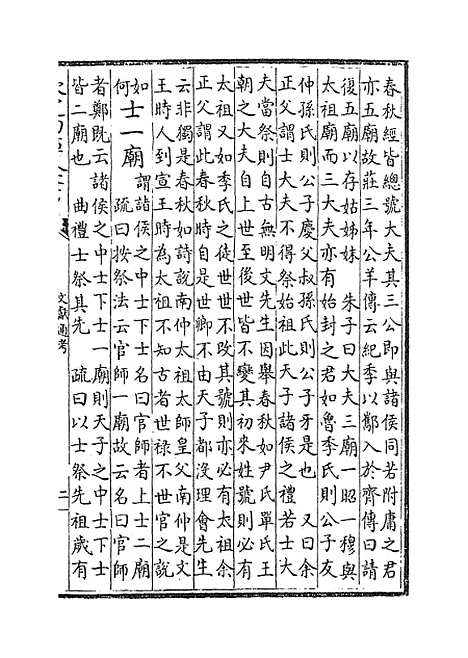 春秋經皆總號大夫其三公即與諸侯同若附庸之君
亦五廟故莊三年公羊傳云紀季以酅入於齊傳曰請
復五廟以存姑姊妹　朱子曰大夫三廟一昭一穆與
太祖廟而三大夫亦有始封之君如魯季氏則公子友
仲孫氏則公子慶父叔孫氏則公子牙是也　又曰余
正父謂士大夫不得祭始祖此天子諸侯之禮若士大
夫當祭則自古無明文先生因舉春秋如尹氏單氏王
朝之大夫自上世至後世皆不變其初來姓號則必有
太祖又如季氏之徒世世不改其號則亦必有太祖余
正父謂此春秋時自是世卿不由天子都沒理會先生
云非獨是春秋如詩說南仲太祖太師皇父南仲是文
王時人到宣王時為太祖不知古者世祿不世官之說
如何　士一廟謂諸侯之中士下士名曰官師者上士二廟
疏曰按祭法云官師一廟故云名曰官師
者鄭既云諸侯之中士下士一廟則天子之中士下士
皆二廟也　曲禮士祭其先　疏曰以士祭先祖歲有
文獻通考
二